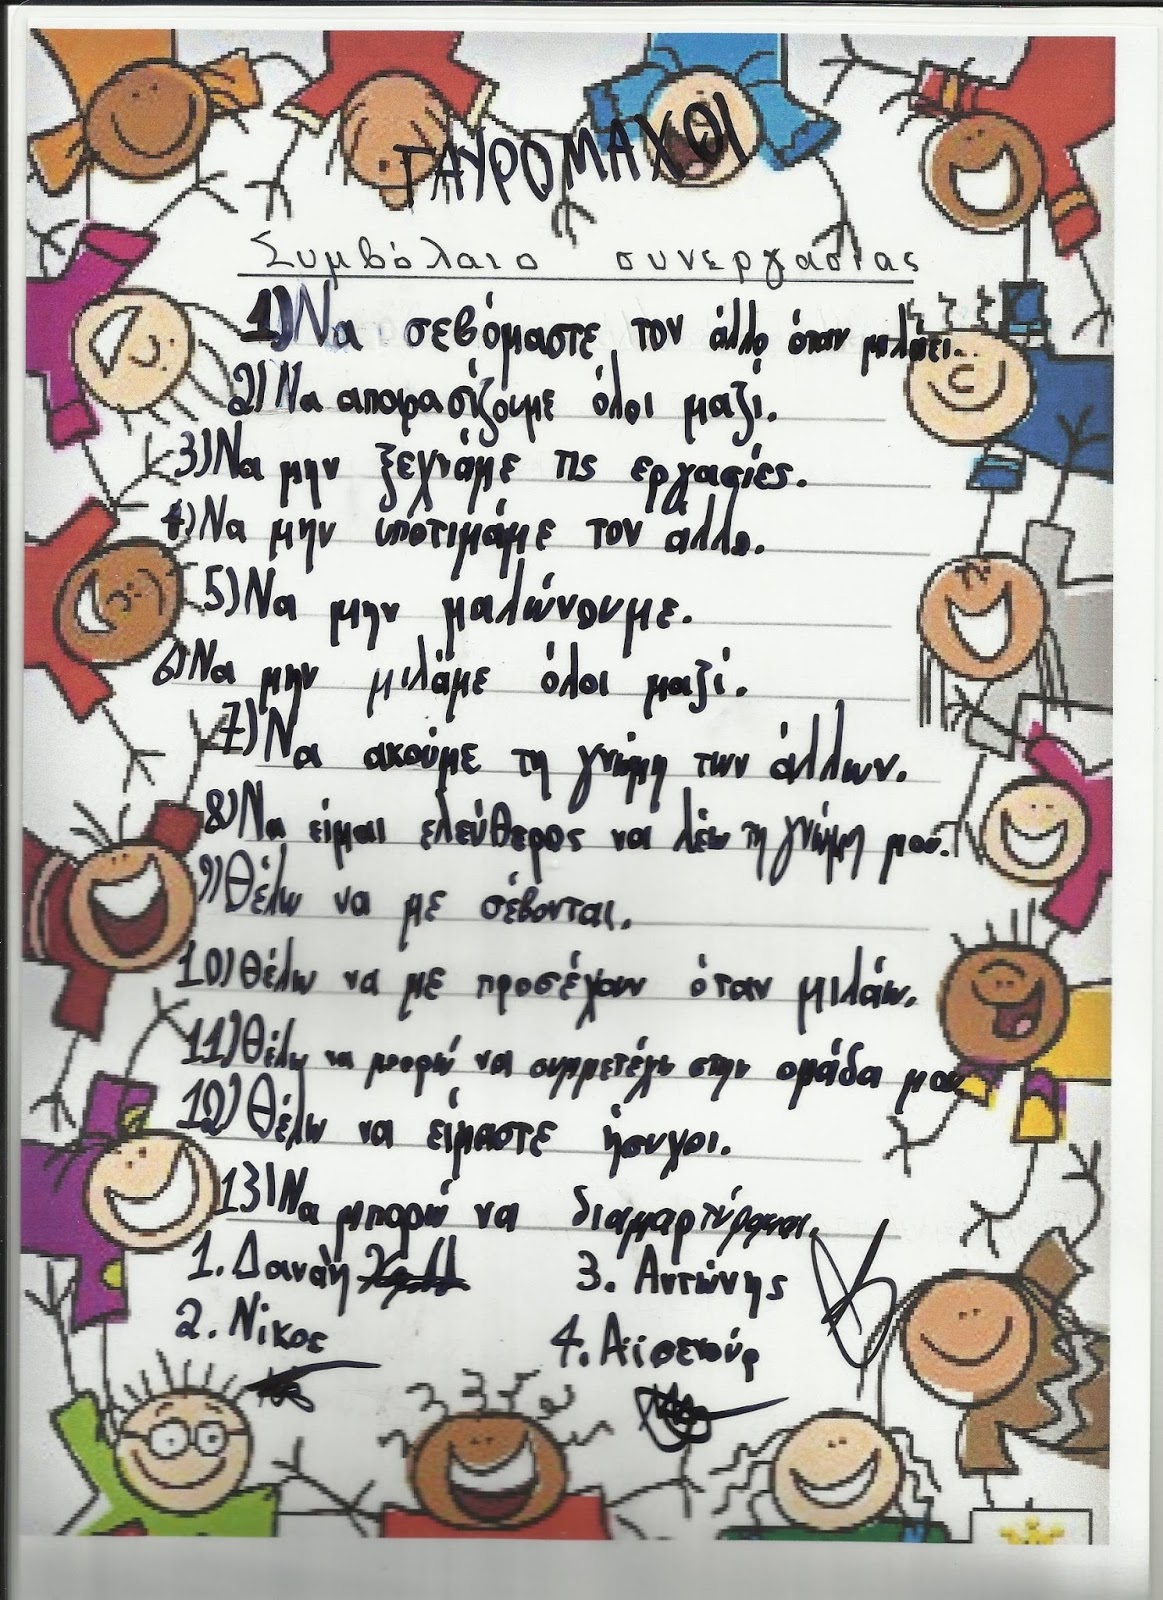 ΓΑΥΡΟΜΑΧΟΙ
Συμβόλαιο συνεργασίας
1) Να σεβόμαστε τον άλλο όταν μιλάει.
2) Να αποφασίζουμε όλοι μαζί.
3) Να μην ξεχνάμε τις εργασίες.
4) Να μην υποτιμάμε τον αλλο.
5) Να μην μαλώνουμε.
6) Να μην μιλάμε όλοι μαζί.
7) Να ακούμε τη γνώμη των άλλων.
8) Να είμαι ελεύθερος να λέω τη γνώμη μου.
9) Θέλω να με σέβονται.
10) Θέλω να με προσέχουν όταν μιλάω.
11) Θέλω να μπορώ να συμμετέχω στην ομάδα μου
12) Θέλω να είμαστε ήσυχοι.
13) Να μπορώ να διαμαρτύρομαι.
1. Δανάη 3. Αντώνης
2. Νίκος 4. Αϊσενούρ